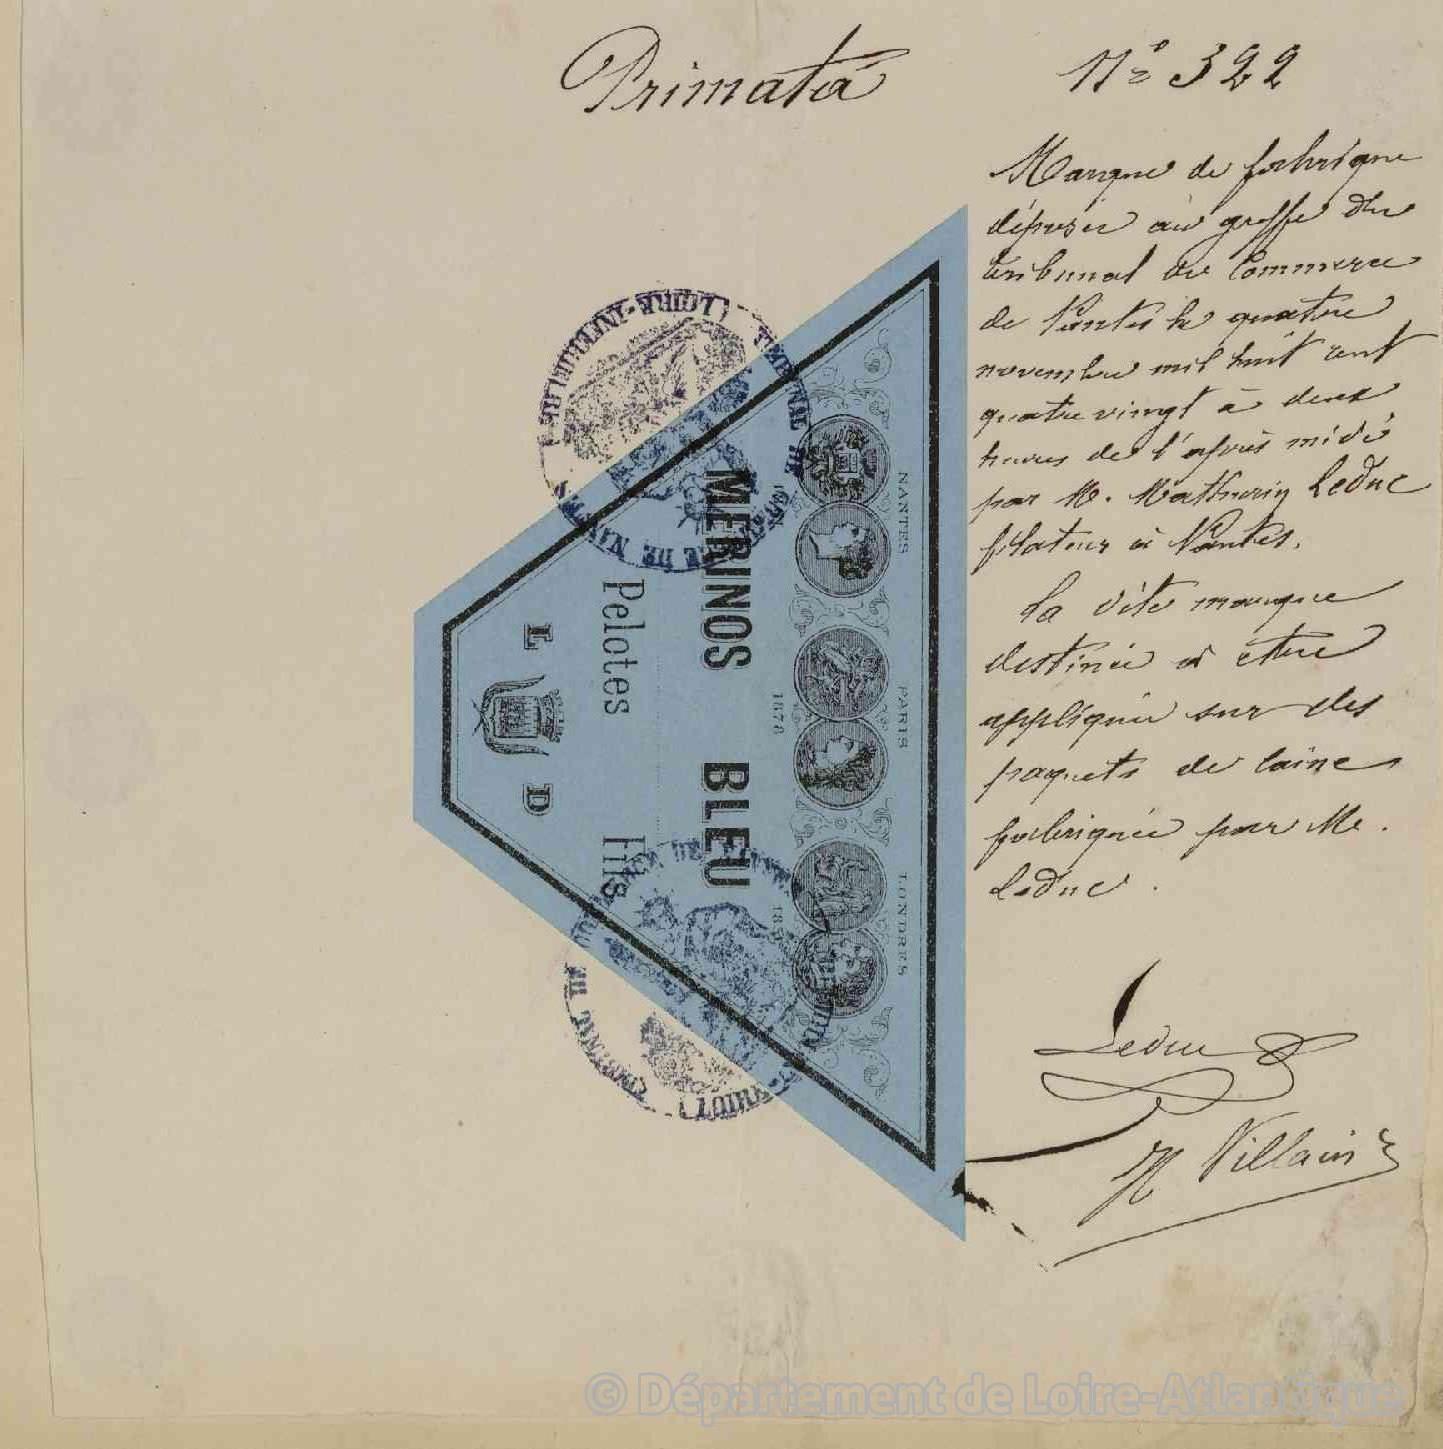 Primata
N° 322
Marque de fabrique
déposée au greffe du
tribunal de Commerce
de Nantes le quatre
novembre mil huit cent
quatre vingt à deux
heures de l'après midi
par M. Mathurin Leduc
filateur à Nantes.
La dite marque
destinée à être
appliquée sur des
paquets de laine
fabriquée par M.
Leduc.
Leduc
H Villain
NANTES PARIS LONDRES
1878
MERINOS BLEU
Pelotes Fils
L D
TRIBUNAL DE COMMERCE DE NANTES (LOIRE-INFERIEURE)
© Département de Loire-Atlantique